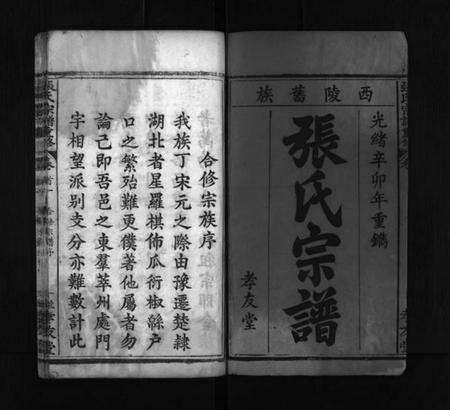 西陵舊族
光緒辛卯年重鐫
張氏宗譜
孝友堂
合修宗族序
我族丁宋元之際由豫遷楚隸
湖北者星羅棋佈瓜衍椒緜戶
口之繁殆難更僕著他屬者勿
論己即吾邑之東羣萃州處門
字相望派別支分亦難數計此